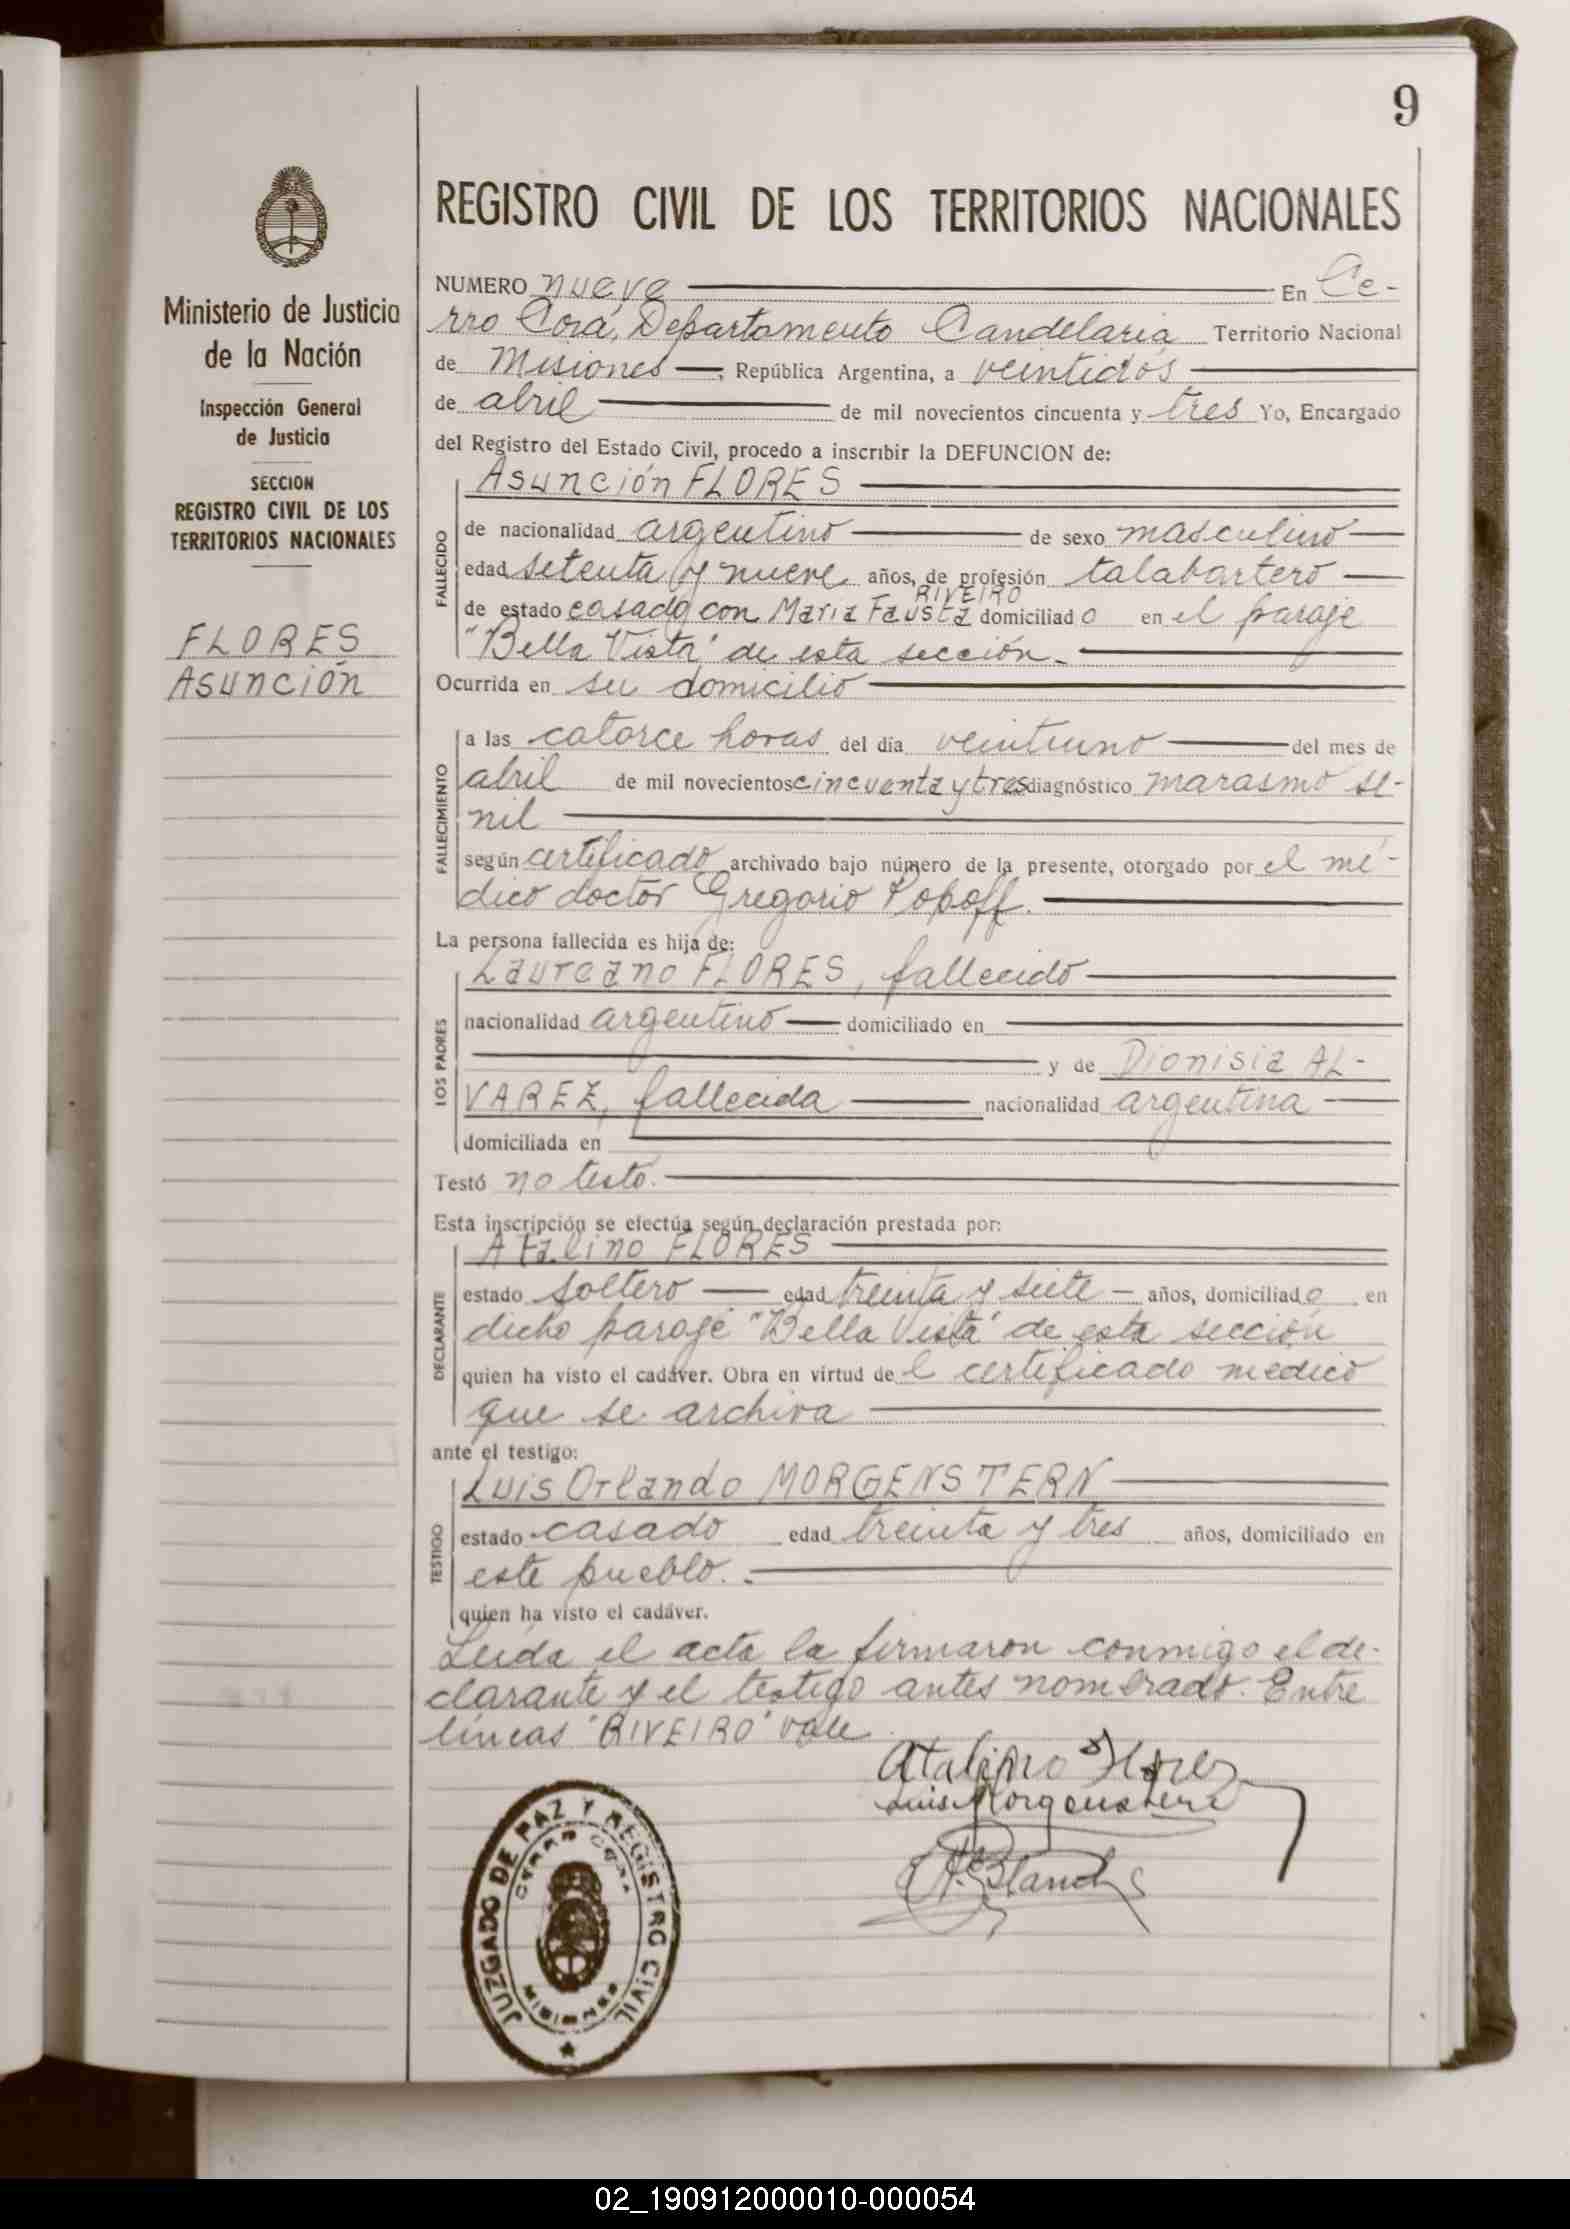 9
Ministerio de Justicia
de la Nación
Inspección General
de Justicia
SECCION
REGISTRO CIVIL DE LOS
TERRITORIOS NACIONALES
FLORES
Asunción
REGISTRO CIVIL DE LOS TERRITORIOS NACIONALES
NUMERO nueve En Ce-
rro Corá, Departamento Candelaria Territorio Nacional
de Misiones, República Argentina, a veintidós
de abril de mil novecientos cincuenta y tres Yo, Encargado
del Registro del Estado Civil, procedo a inscribir la DEFUNCION de:
FALLECIDO
Asunción FLORES
de nacionalidad argentino de sexo masculino
edad setenta y nueve años, de profesión talabartero
RIVEIRO
de estado casado con Maria Fausta domiciliado en el paraje
"Bella Vista" de esta sección.
Ocurrida en su domicilio
FALLECIMIENTO
a las catorce horas del día veintiuno del mes de
abril de mil novecientos cincuenta y tres diagnóstico marasmo se-
nil
según certificado archivado bajo número de la presente, otorgado por el mé-
dico doctor Gregorio Popoff.
La persona fallecida es hija de:
LOS PADRES
Laureano FLORES, fallecido
nacionalidad argentino domiciliado en
y de Dionisia AL-
VAREZ, fallecida nacionalidad argentina
domiciliada en
Testó no testó.
Esta inscripción se efectúa según declaración prestada por:
DECLARANTE
Atalino FLORES
estado soltero edad treinta y siete años, domiciliado en
dicho paraje "Bella Vista" de esta sección
quien ha visto el cadáver. Obra en virtud del certificado médico
que se archiva
ante el testigo:
TESTIGO
Luis Orlando MORGENSTERN
estado casado edad treinta y tres años, domiciliado en
este pueblo.
quien ha visto el cadáver.
Leída el acta la firmaron conmigo el de-
clarante y el testigo antes nombrado. Entre
líneas "RIVEIRO" vale
Atalino Flores
Luis Morgenstern
JUZGADO DE PAZ Y REGISTRO CIVIL
CERRO CORA
MISIONES
02_190912000010-000054